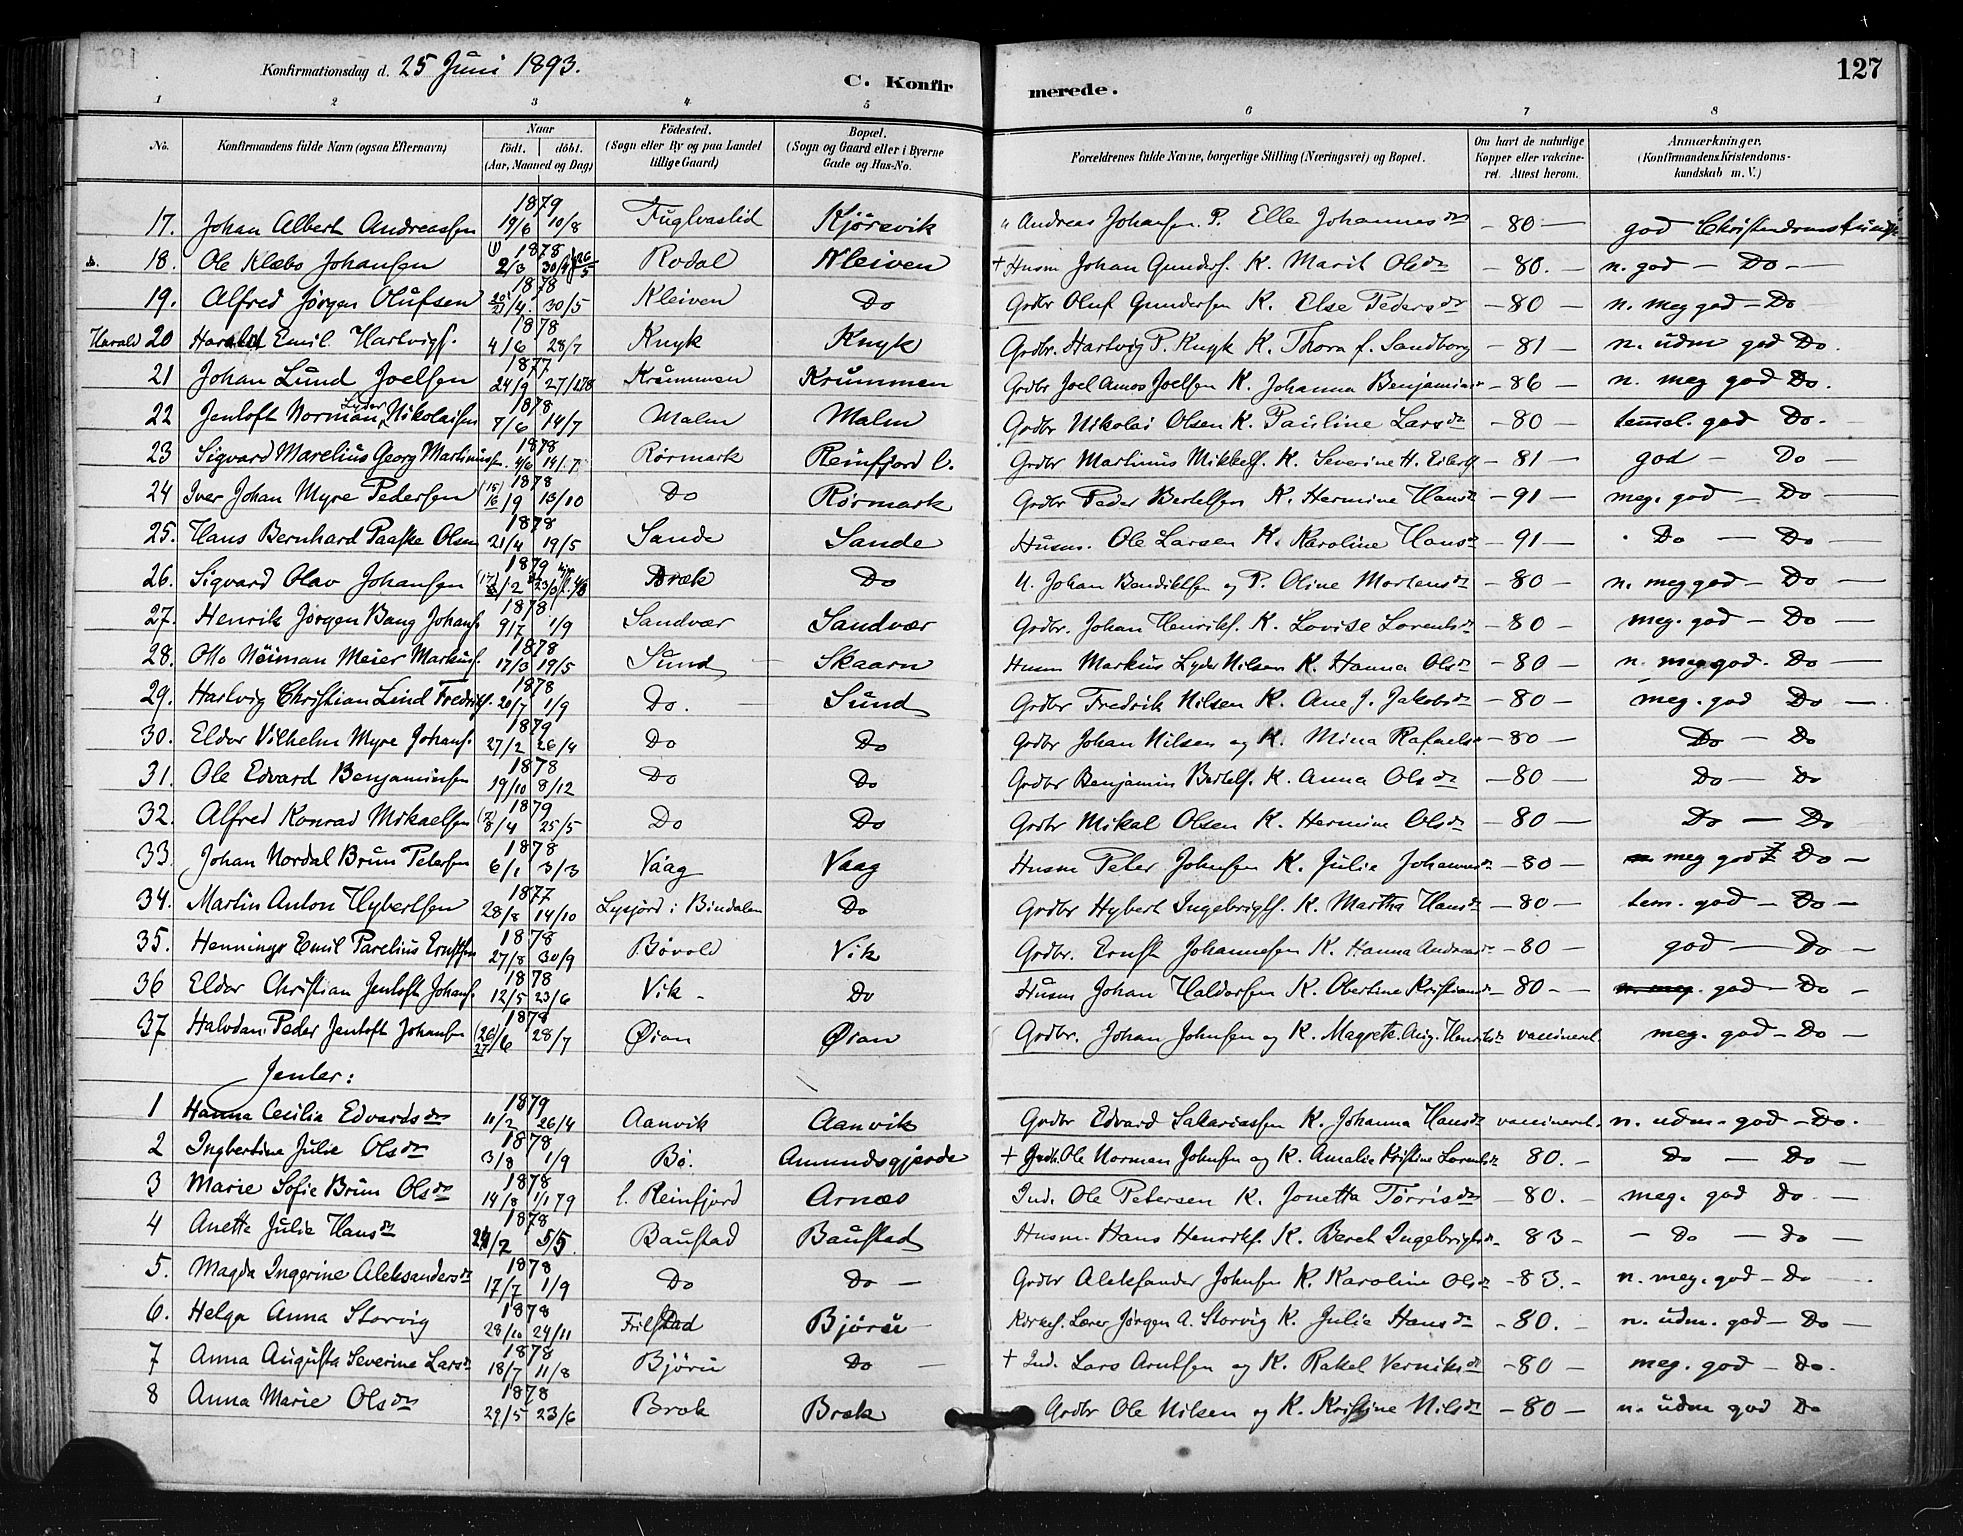 Konfirmationsdag d. 25 Juni 1893.
C. Konfirmerede.
127
1 2 3 4 5 6 7 8
No. Konfirmandens fulde Navn (ogsaa Efternavn) Naar födt. döbt. (Aar, Maaned og Dag) Födested. (Sogn eller By og paa Landet tillige Gaard) Bopæl. (Sogn og Gaard eller i Byerne Gade og Hus-No. Forældrenes fulde Navne, borgerlige Stilling (Næringsvei) og Bopæl. Om havt de naturlige Kopper eller vakcineret. Attest herom. Anmærkninger. (Konfirmandens Kristendomskundskab m. V.)
17. Johan Albert Andreassen 1879 19/6 10/8 Fuglvastid Kjørsvik " Andreas Johansen. P. Elle Johannesdr - 80 - god Christendomskundsk
18. Ole Klæbo Johansen 1878 2/3 30/4 Rodal Kleiven + Husm Johan Gunders. K. Marit Olsdr - 80. - n. god - Do -
19. Alfred Jørgen Olufsen 1878 21/4. 30/5 Kleiven Do Grdbr Oluf Gundersen K. Else Pedersdr - 80 n. meg god - Do
Harald 20 Harald Emil Hartvigs. 1878 4/6 28/7 Knyk Knyk Grdbr. Hartvig P. Knyk K. Thora f. Sandborg - 81 n. udm god Do.
21 Johan Lund Joelsen 1877 24/9 27/1 78 Krümmen Krümmen Grdbr Joel Amos Joelsen K. Johanna Benjamins - 86 n. meg god Do.
22 Jentoft Norman Lyder Nikolaisen 1878 7/6 14/7 Malm Malm Grdbr Nikolai Olsen K. Pauline Larsdr - 80 temmel. god Do.
23 Sigvard Marelius Georg Martinusen 1878 4/6 14/7 Rørmark Reinfjord l. Grdbr Martinus Mikkels. K. Severine H. - 81 god - Do -
24 Iver Johan Myre Pedersen 1878 (15) 16/9 13/10 Do Rørmark Grdbr Peder Bertelsen K. Hermine Hansdr - 91 - meg. god - Do -
25. Hans Bernhard Paaske Olsen 1878 21/4 19/5 Sande Sande Husm. Ole Larsen K. Karoline Hansdr - 91 - Do - Do -
26. Sigvard Olav Johansen 1879 (17) /2 23/3 Bræk Do U. Johan Bendiktsen og P. Oline Mortensdr - 80 - n. meg god - Do -
27. Henrik Jørgen Bang Johans. 1878 9/7 1/9 Sandvær Sandvær Grdbr. Johan Henriks. K. Lovise Lorentsdr - 80 - meg. god - Do -
28. Otto Neiman Meier Markus. 1878 17/3 19/5 Sund - Skaarn Husm Markus Lyder Nilsen K. Hanna Olsdr - 80 - n. meg god. Do -
29. Hartvig Christian Lind Fredriks. 1878 20/7 1/9 Do. - Sund Grdbr Fredrik Nilsen K. Ane J. Jakobsdr - 80 - meg. god Do -
30. Eldor Vilhelm Myre Johans. 1879 27/2 26/4 Do Do Grdbr Johan Nilsen og K. Mina Rafaels - 80 - Do - Do
31. Ole Edvard Benjaminsen 1878 19/10 8/12 Do Do Grdbr Benjamin Bertels. K. Anna Olsdr - 80 - Do - Do
32. Alfred Konrad Mikaelsen 1879 8/4 25/5 Do Do Grdbr Mikal Olsen K. Hermine Olsdr - 80 - Do - Do
33. Johan Nordal Brun Petersen 1878 6/1 3/3 Vaag Vaag Husm Peter Johnsen K. Julie Johannesdr - 80 - meg god Do -
34. Martin Anton Hybertsen 1877 28/8 14/10 Lysfjord i Bindalen Do Grdbr Hybert Ingebrigts. K. Martha Hansdr - 80 - tem. god - Do -
35. Henningr Emil Parelius Ernstsen 1878 27/8 30/9 Bøvold Vik Grdbr. Ernst Johannesen K. Hanna Andreasdr - 80 - god - Do -
36 Eldor Christian Jentoft Johans. 1878 12/5 23/6 Vik - Do Husm Johan Haldorsen K. Obertine Kristians - 80 - n. meg. god - Do -
37 Halvdan Peder Jentoft Johansen 1878 (26) 27/6 28/7 Øian Øian Grdbr. Johan Johnsen og K. Magrete Aug. Henriksdr vaccineret. meg. god - Do -
Jenter:
1 Hanna Cecilia Edvardsdr 1879 11/2 26/4 Aanvik Aanvik Grdbr Edvard Sakariassen K. Johanna Hansdr vaccineret. n. udm. god - Do.
2 Ingbertine Julie Olsdr 1878 3/8 1/9 Bø. Amundsgjerde + Grdbr. Ole Norman Johnsen og K. Amalie Kristine Lorentsdr 80. - Do - Do -
3 Marie Sofie Brun Olsdr 1878 14/8 1/1 79 l. Reinfjord Arnæs Ind. Ole Petersen K. Jonetta Tørrisdr - 80. - meg. god Do -
4 Anette Julie Hansdr 1878 24/2 5/5. Baustad Baustad Husm. Hans Henriks. K. Beret Ingebrigtsdr. - 83 - - Do - Do -
5. Magda Ingerine Aleksandersdr 1878 17/7 1/9 Do Do - Grdbr Aleksander Johnsen K. Karoline Olsdr - 83. - n. meg. god - Do
6. Helga Anna Storvig 1878 28/10 24/11 Frilstad Bjørü Kirkes. Lærer Jørgen A. Storvig K. Julie Hansdr - 80. - n. udm. god - Do -
7 Anna Augusta Severine Larsdr 1878 18/7 11/8 Bjørü Do - + Ind. Lars Arntsen og K. Rakel Verniksdr - 80 - meg. god - Do.
8 Anna Marie Olsdr 1878 29/5 23/6 Bræk Bræk Grdbr Ole Nilsen og K. Kristine Nilsdr - 80 - n. udm god Do